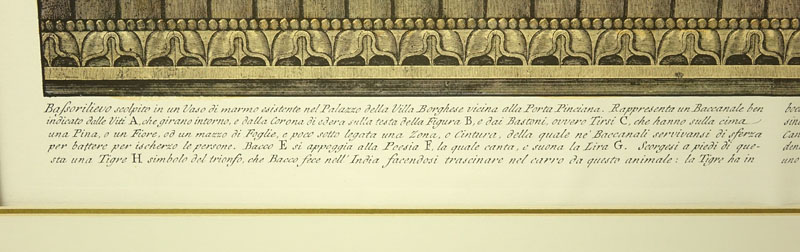 Baſsorilievo scolpito in un Vaso di marmo esistente nel Palazzo della Villa Borghese vicina alla Porta Pinciana. Rappresenta un Baccanale ben
indicato dalle Viti A, che girano intorno, e dalla Corona di edera sulla testa della Figura B, e dai Bastoni, ovvero Tirsi C, che hanno sulla cima
una Pina, o un Fiore, od un mazzo di Foglie, e poco sotto legata una Zona, o Cintura, della quale ne' Baccanali servivansi di sferza
per battere per ischerzo le persone. Bacco E si appoggia alla Poesia F, la quale canta, e suona la Lira G. Scorgesi a piedi di que-
sta una Tigre H simbolo del trionfo, che Bacco fece nell' India facendosi trascinare nel carro da questo animale: la Tigre ha in